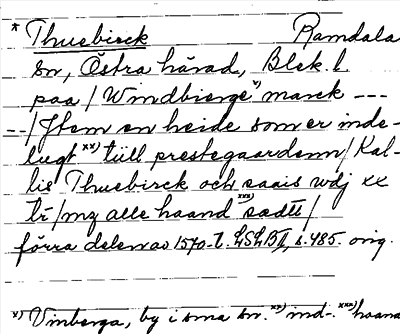 * Thuebirck Ramdala
sn, Östra härad, Blek. l.
paa / Windbierge x) marck ---
--/ Jtem en heide som er inde-
lugt xx) tiill prestegaardenn / Kal-
lis Thuebirck och saais wdj xx
tr / mz alle haand xxx) sædt /
förra delen av 1570-t. LSLBII, s. 485. orig.
x) Vinberga, by i sma sn. xx) ind-. xxx) haand